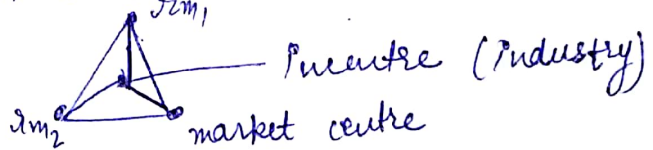 rm1
Incentre (industry)
rm2
market centre